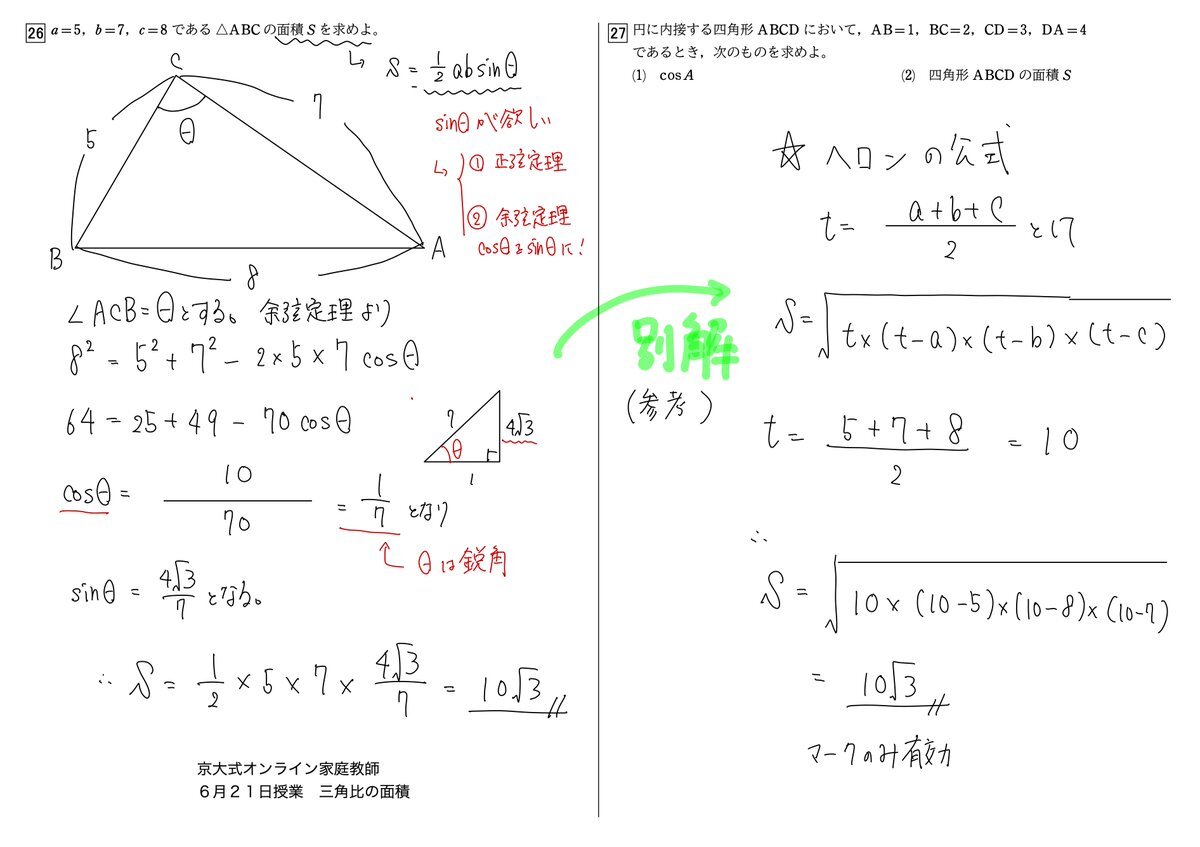 26 a=5, b=7, c=8である△ABCの面積Sを求めよ。
↳ S = 1/2 ab sinθ
C
θ
5
7
B
A
8
sinθが欲しい
↳ ① 正弦定理
② 余弦定理
cosθをsinθに!
∠ACB=θとする。余弦定理より
8² = 5² + 7² − 2×5×7 cosθ
64 = 25 + 49 − 70 cosθ
cosθ = 10/70 = 1/7 となり
θは鋭角
7
4√3
θ
1
sinθ = 4√3/7 となる。
∴ S = 1/2 × 5 × 7 × 4√3/7 = 10√3
京大式オンライン家庭教師
6月21日授業 三角比の面積
27 円に内接する四角形ABCDにおいて，AB=1，BC=2，CD=3，DA=4
であるとき，次のものを求めよ。
(1) cosA
(2) 四角形ABCDの面積S
☆ ヘロンの公式
t = (a+b+c)/2 とし
S = √(t×(t−a)×(t−b)×(t−c))
別解
(参考)
t = (5+7+8)/2 = 10
∴
S = √(10×(10−5)×(10−8)×(10−7))
= 10√3
マークのみ有効